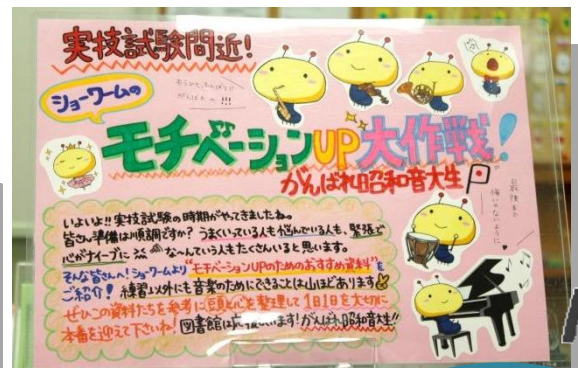 実技試験間近！
ショーワームの
モチベーションUP大作戦！
がんばれ昭和音大生
いよいよ!!実技試験の時期がやってきましたね。
皆さん準備は順調ですか？うまくいっている人も悩んでいる人も、緊張で
心がナイーブに なーんていう人もたくさんいると思います。
そんな皆さんへ！ショーワームより"モチベーションUPのためのおすすめ資料"を
ご紹介！練習以外にも音楽のためにできることは山ほどあります
ぜひこの資料たちを参考に頭と心を整理して1日1日を大切に
本番を迎えて下さいね！図書館は応援しています！がんばれ昭和音大生!!
最後まで
悔いのないように